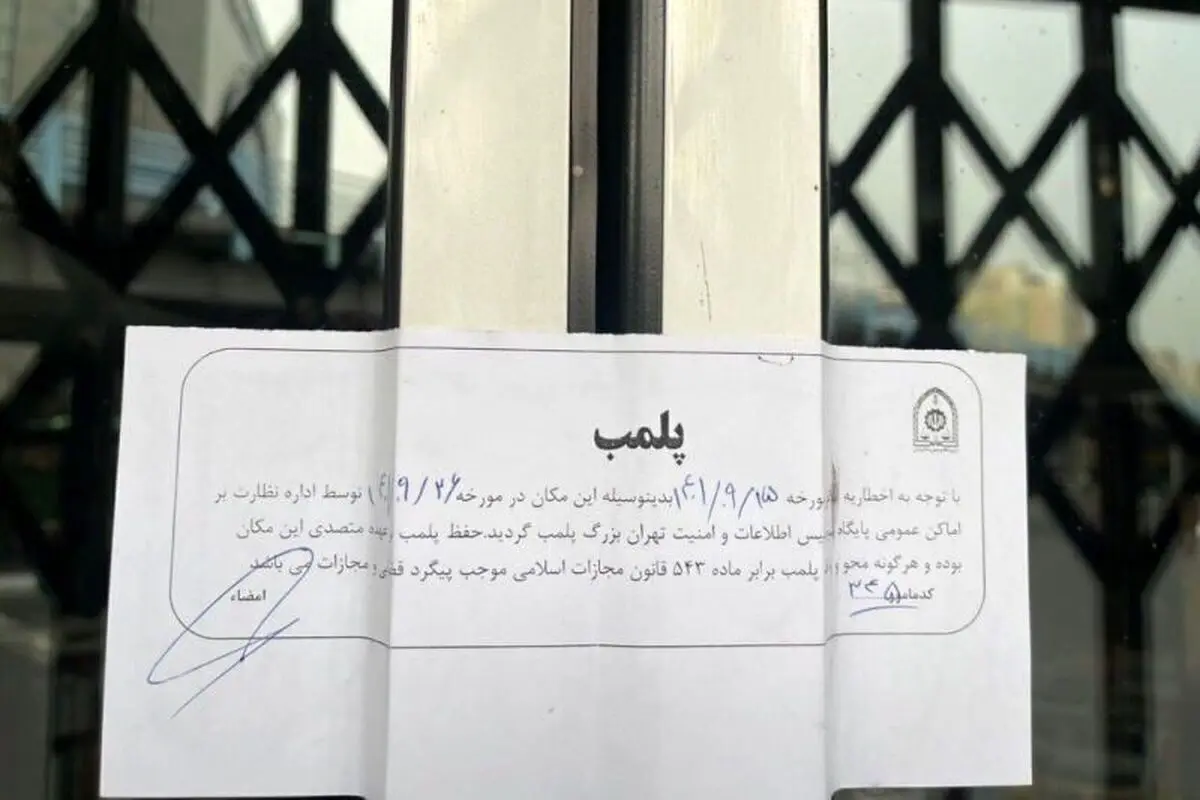 پلمب
با توجه به اخطاریه مورخه ۱۴۰۱/۰۹/۱۵ بدینوسیله این مکان در مورخه ۱۴۰۱/۹/۲۶ توسط اداره نظارت بر
اماکن عمومی پایگاه پلیس اطلاعات و امنیت تهران بزرگ پلمب گردید.حفظ پلمب بعهده متصدی این مکان
بوده و هرگونه محو و پلمب برابر ماده ۵۴۳ قانون مجازات اسلامی موجب پیگرد قضی و مجازات می باشد
کدمامور ۳۴۵
امضاء